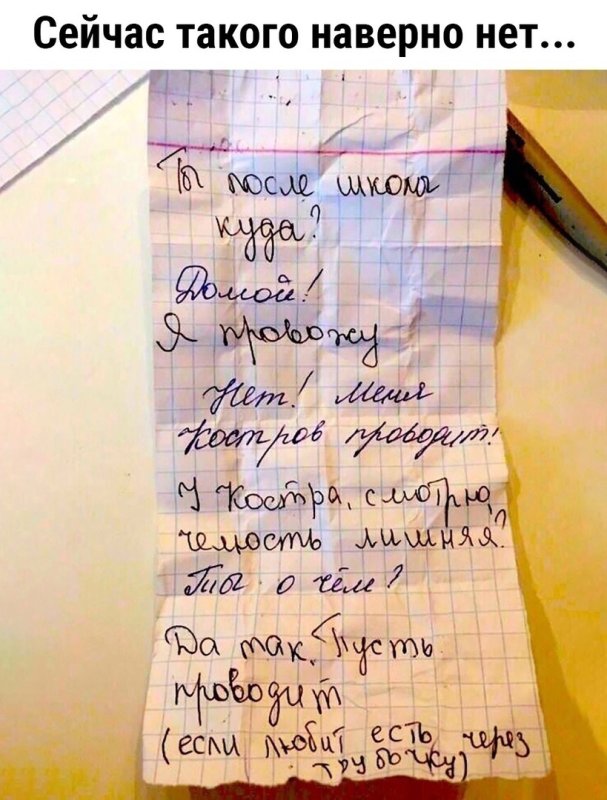 Сейчас такого наверно нет...
Ты после школы
куда?
Домой!
Я провожу
Нет! Меня
Костров проводит!
У Костра, смотрю,
челюсть лишняя?
Ты о чём?
Да так. Пусть
проводит
(если любит есть через
трубочку)